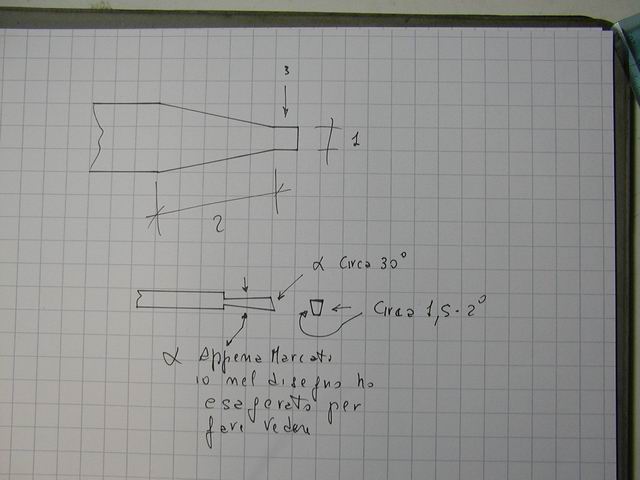 3
1
2
α Circa 30°
Circa 1,5-2°
α Appena Marcati
io nel disegno ho
esagerato per
fare vedere